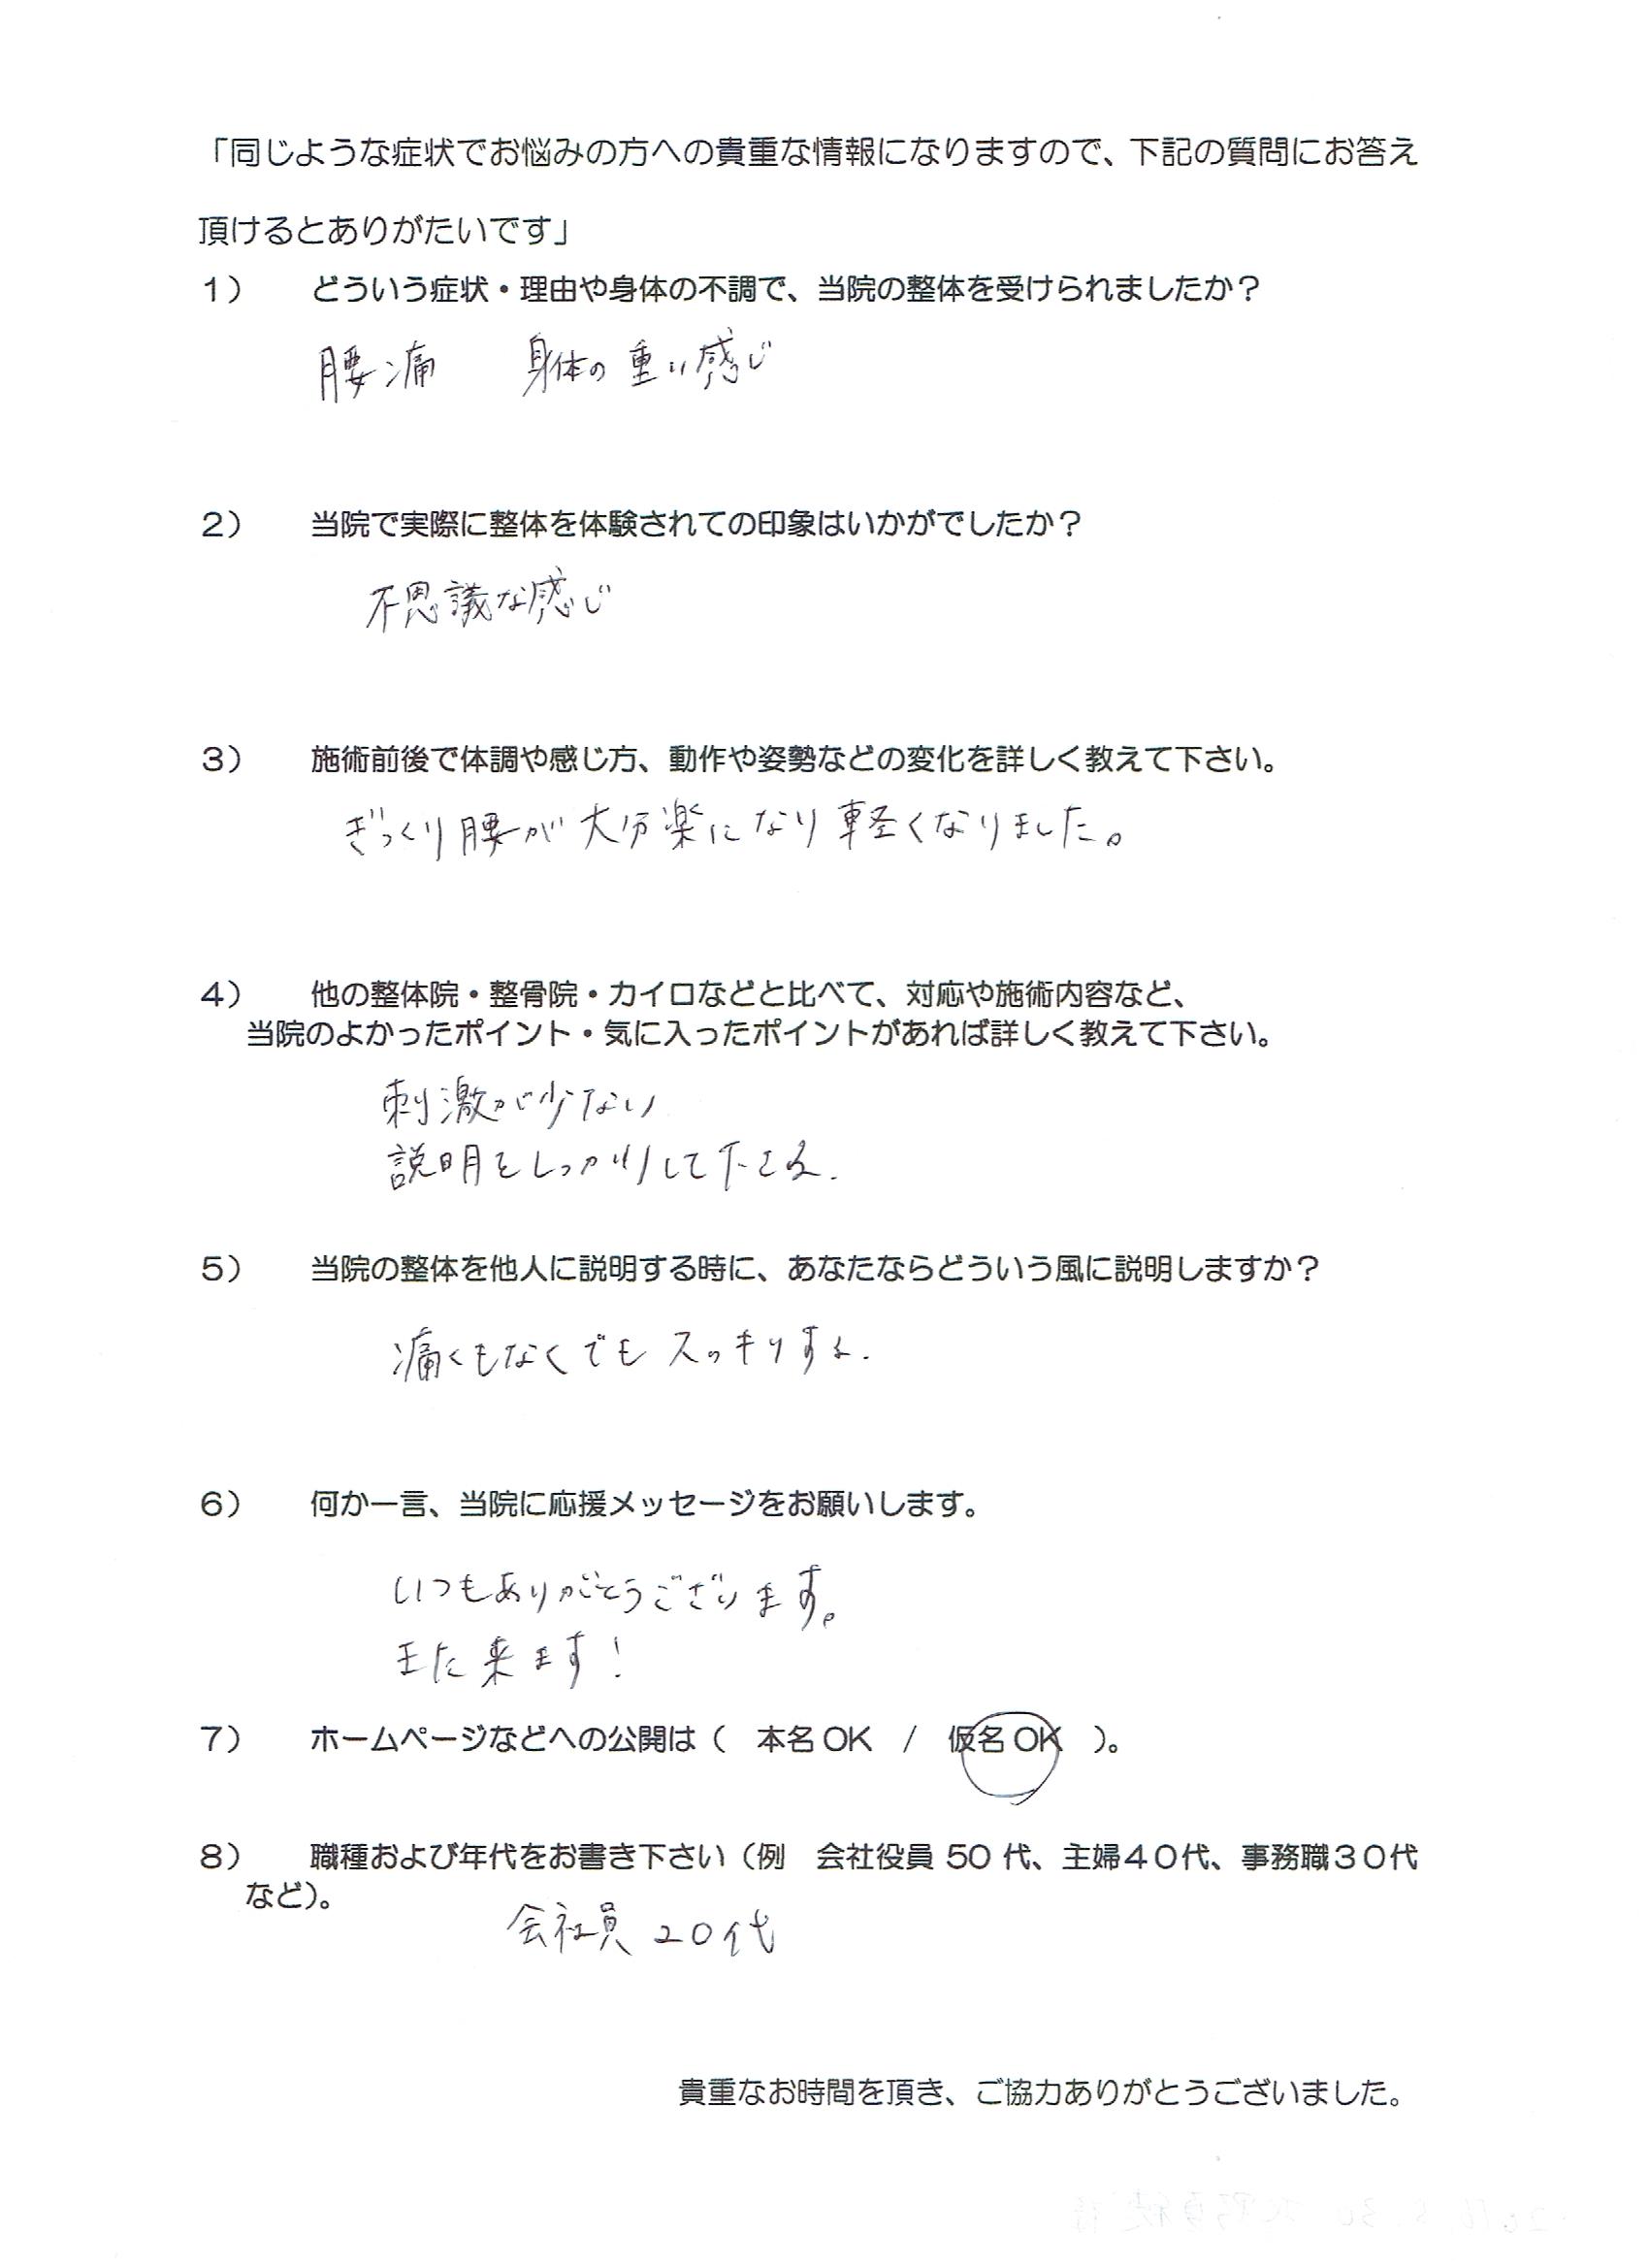 「同じような症状でお悩みの方への貴重な情報になりますので、下記の質問にお答え
頂けるとありがたいです」
１）　どういう症状・理由や身体の不調で、当院の整体を受けられましたか？
腰痛　身体の重い感じ
２）　当院で実際に整体を体験されての印象はいかがでしたか？
不思議な感じ
３）　施術前後で体調や感じ方、動作や姿勢などの変化を詳しく教えて下さい。
ぎっくり腰が大分楽になり軽くなりました。
４）　他の整体院・整骨院・カイロなどと比べて、対応や施術内容など、
当院のよかったポイント・気に入ったポイントがあれば詳しく教えて下さい。
刺激が少ない
説明をしっかりして下さる.
５）　当院の整体を他人に説明する時に、あなたならどういう風に説明しますか？
痛くもなくでもスッキリする.
６）　何か一言、当院に応援メッセージをお願いします。
いつもありがとうございます。
また来ます！
７）　ホームページなどへの公開は（　本名OK　/　仮名OK　）。
８）　職種および年代をお書き下さい（例　会社役員 50 代、主婦４０代、事務職３０代
など）。
会社員 20代
貴重なお時間を頂き、ご協力ありがとうございました。